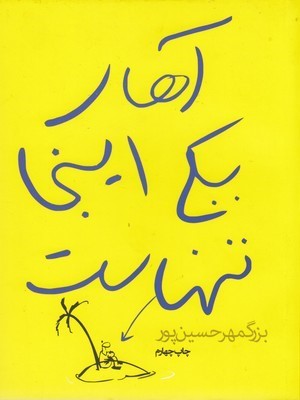 آهای
یکی اینجا
تنهاست
بزرگمهر حسین‌پور
چاپ چهارم